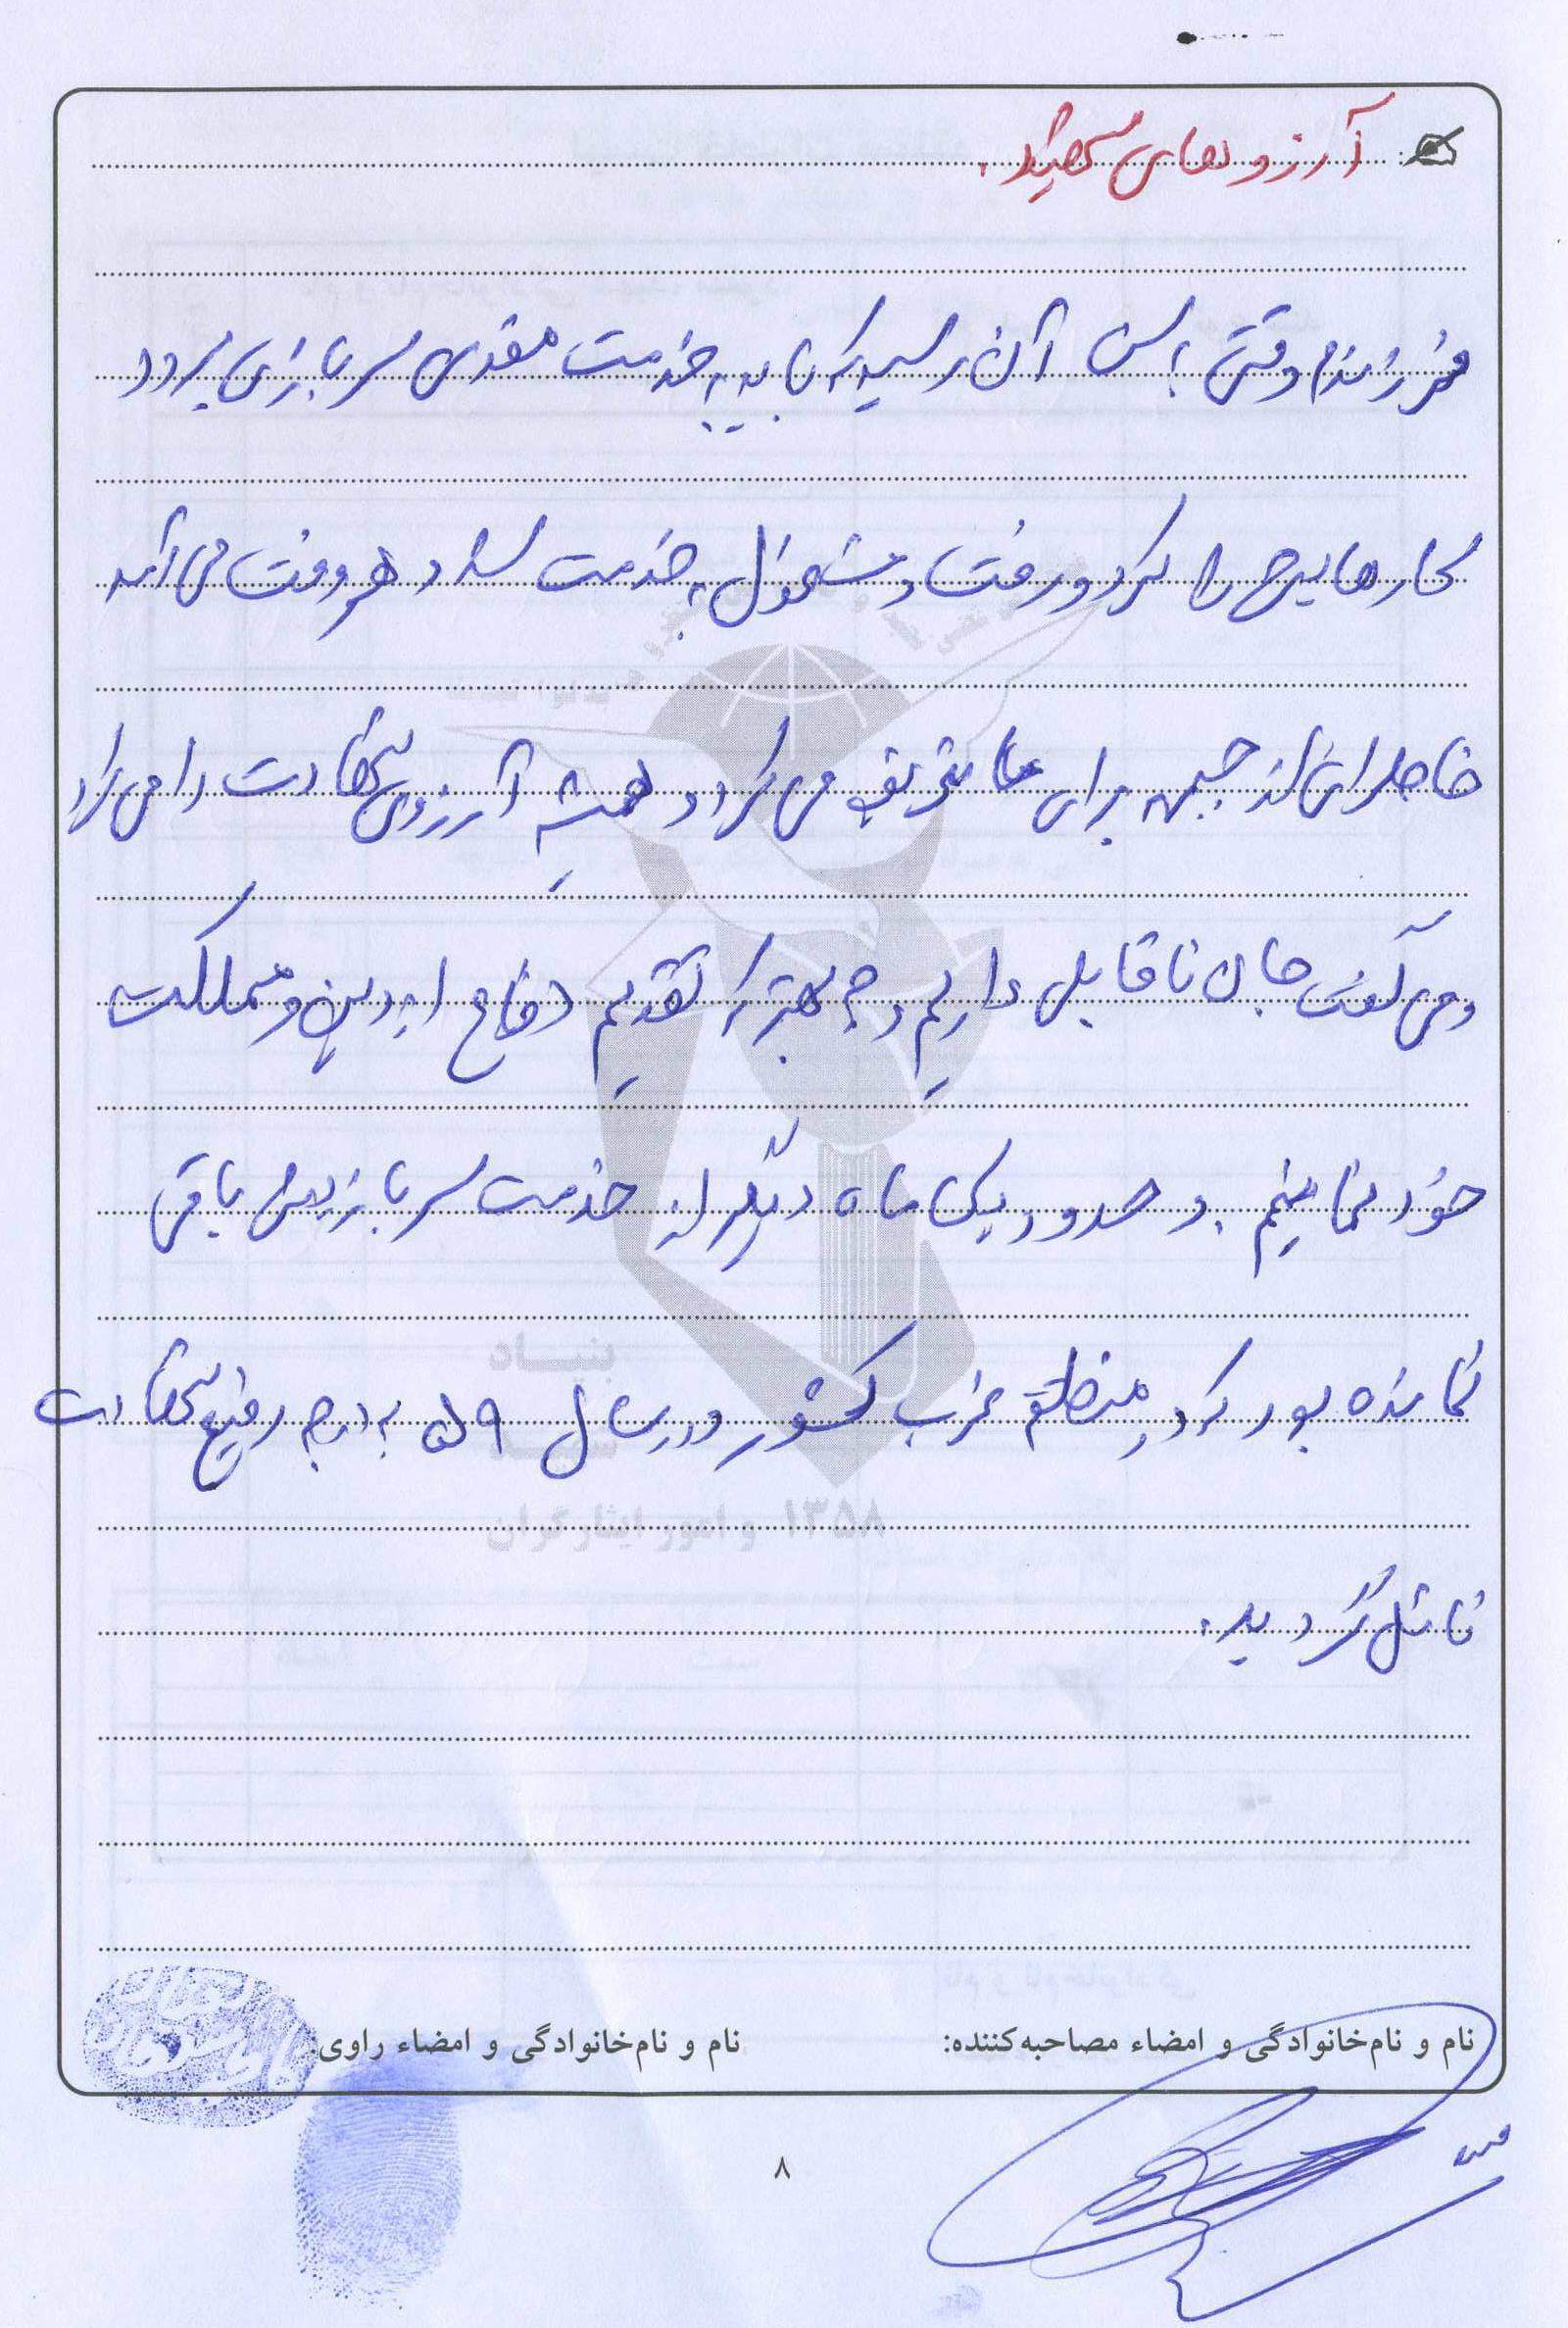 آرزوهای شهید.
فرزندم وقتی به سن آن رسید که باید به خدمت مقدس سربازی برود
کارهایش را کرد و رفت و مشغول به خدمت شد و هر وقت می آمد
خاطراتی از جبهه برای ما تعریف می کرد و همیشه آرزوی شهادت را می کرد
و می گفت جان ناقابلی داریم و چه بهتر که تقدیم دفاع از دین و مملکت
خود نمائیم. و حدود یک ماه دیگر از خدمت سربازیش باقی
نمانده بود که در منطقه غرب کشور در سال ۵۹ به درجه رفیع شهادت
نائل گردید.
بنیاد
شهید
۱۳۵۸ و امور ایثارگران
نام و نام‌خانوادگی و امضاء مصاحبه‌کننده:
نام و نام‌خانوادگی و امضاء راوی:
۸